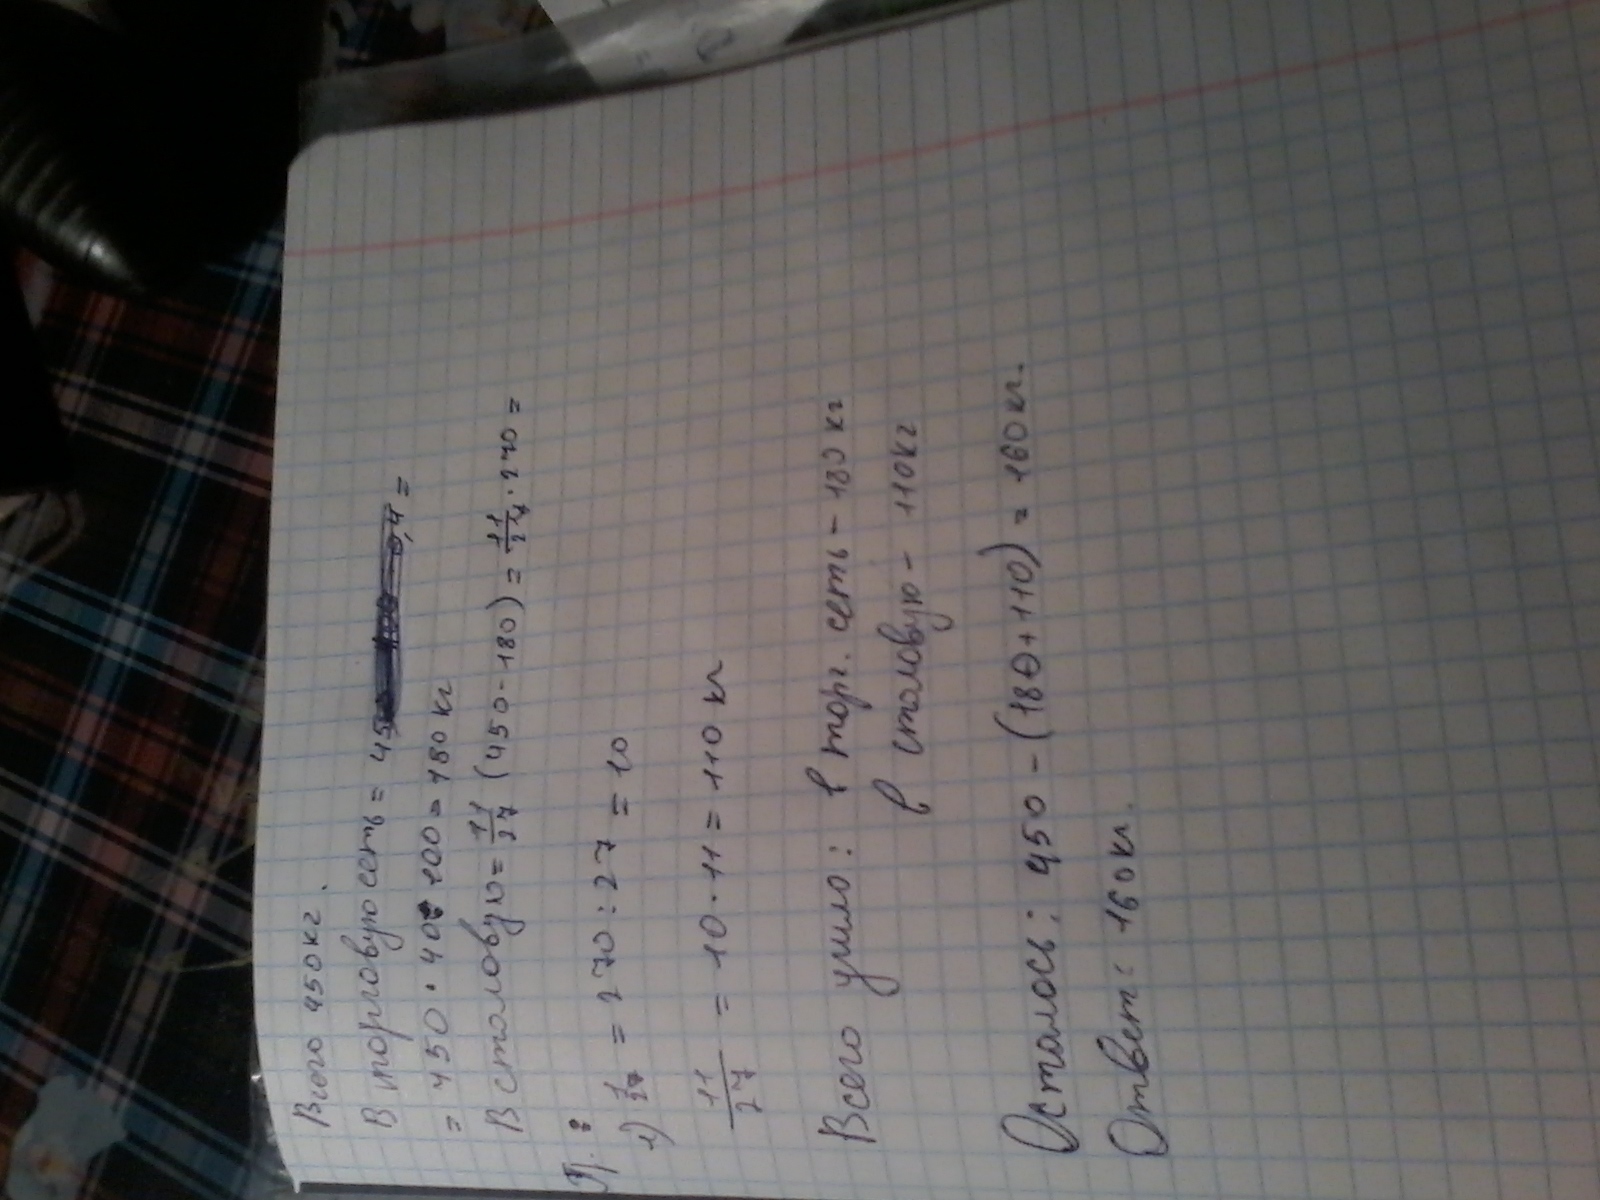 Всего 450 кг.
В торговую сеть = 45 0,4 =
= 450 · 40 : 100 = 180 кг
В столовую = 11/27 (450 - 180) = 11/27 · 270 =
1) 1/27 = 270 : 27 = 10
11/27 = 10 · 11 = 110 кг
Всего ушло: в торг. сеть - 180 кг
в столовую - 110 кг
Осталось: 450 - (180 + 110) = 160 кг.
Ответ: 160 кг.